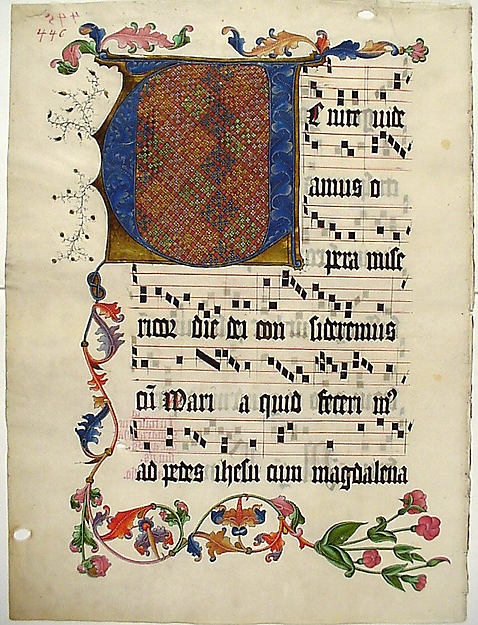 446
VEnite uide
amus o
pera mise
ricor die dei con sideremus
cū Mari a quid feceri m?
ad pedes ihesu cum magdalena